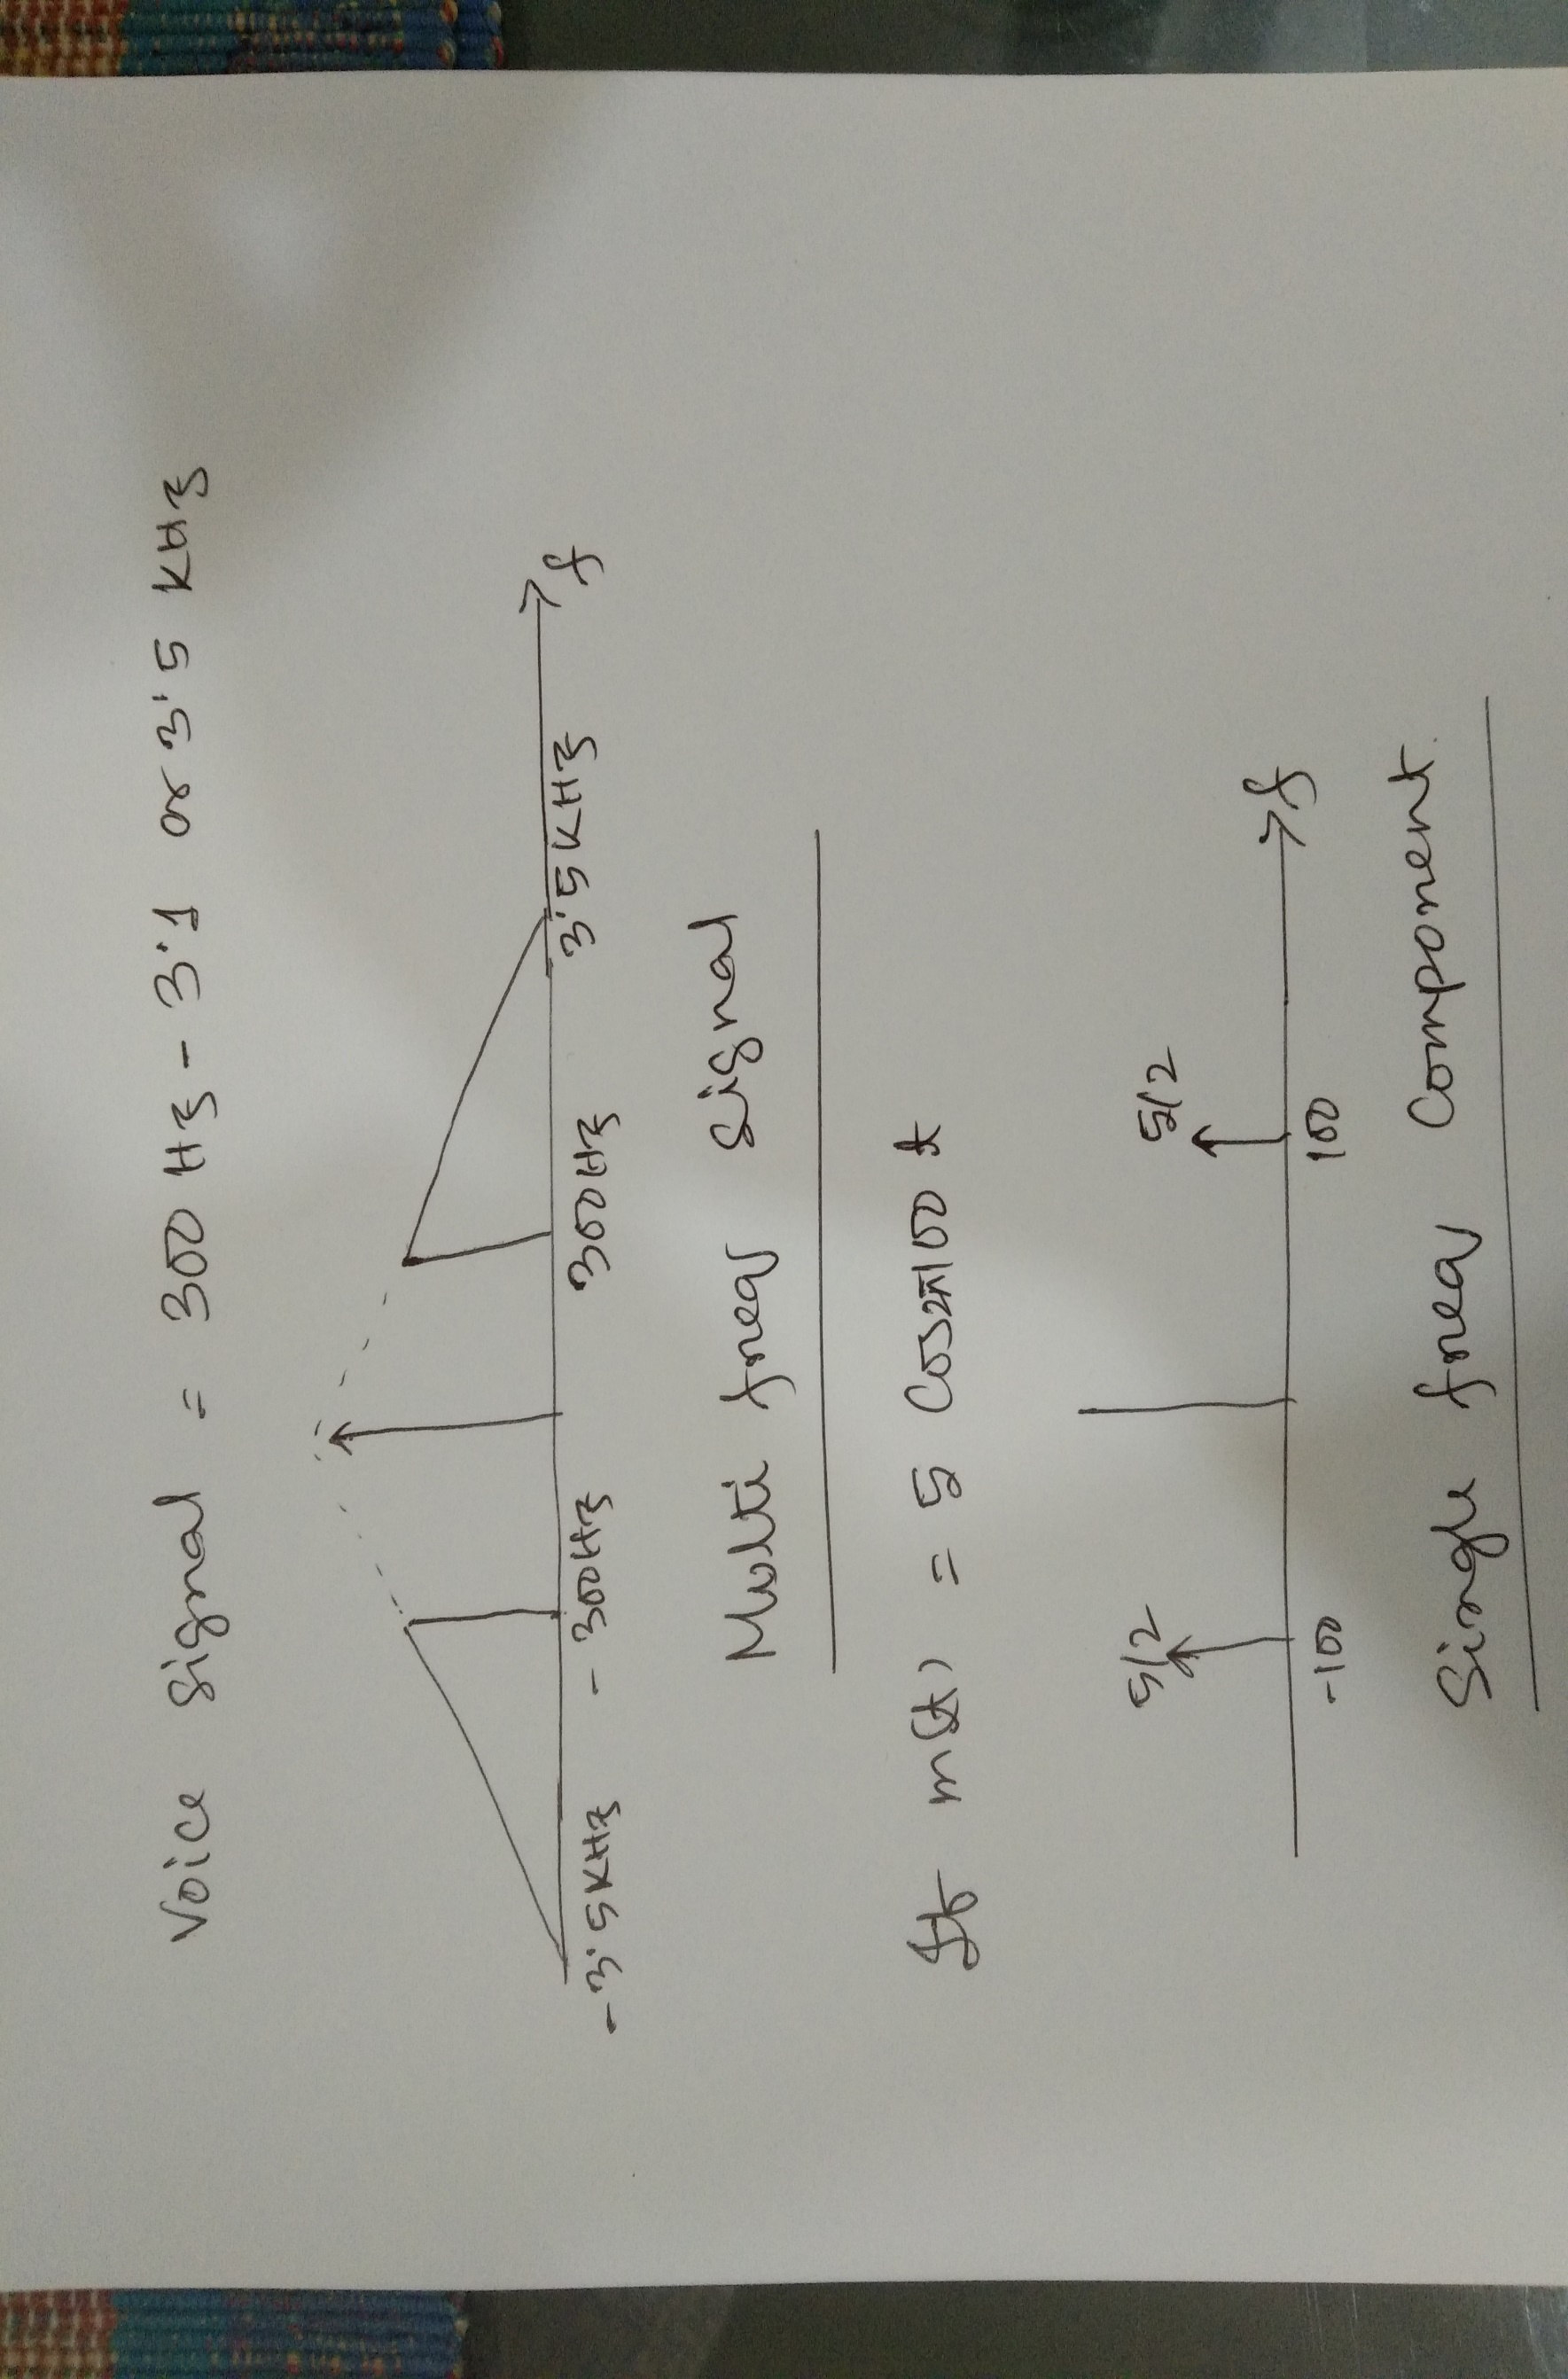 Voice Signal = 300 Hz - 3.1 or 3.5 KHz
f
-3.5KHz -300Hz 300Hz 3.5KHz
Multi freq Signal
If m(t) = 5 Cos2π100t
5/2 5/2
f
-100 100
Single freq Component.